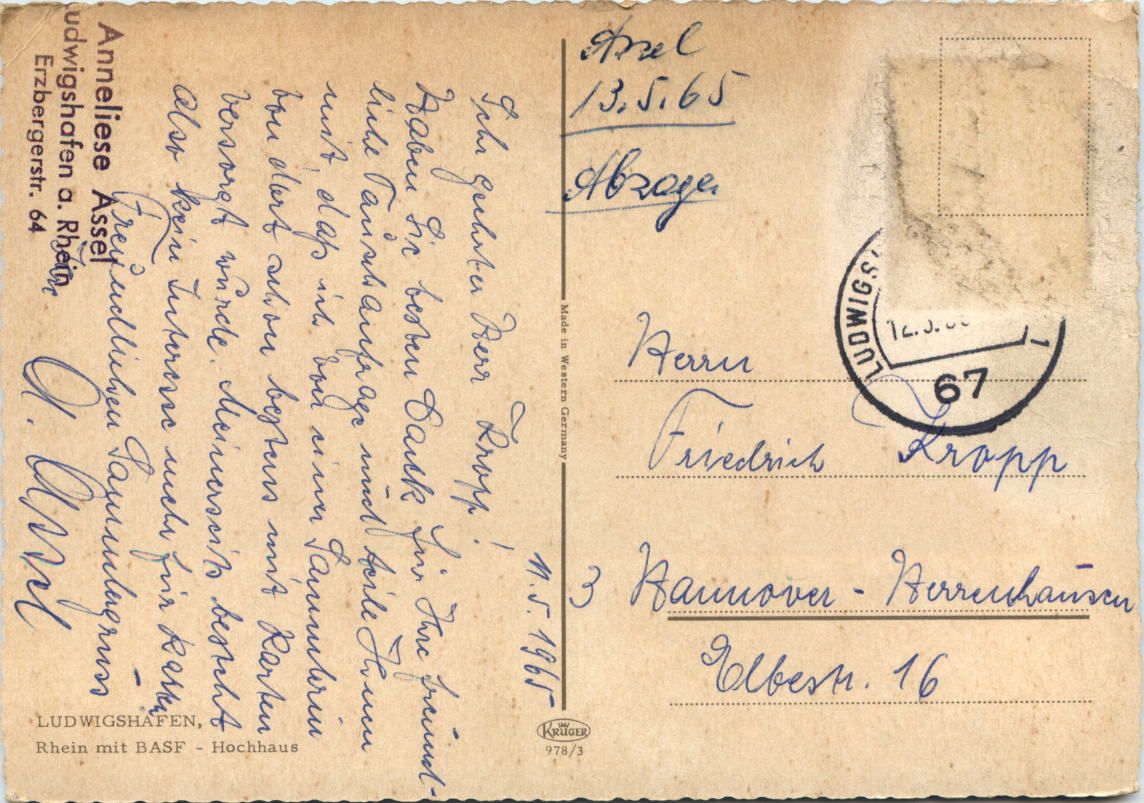 Anneliese Assel
Ludwigshafen a. Rhein
Erzbergerstr. 64
11.5.1965
Sehr geehrter Herr Kropp!
Haben Sie besten Dank für Ihre freund-
liche Tauschanfrage und teile Ihnen
mit, daß ich von einer Sammlerin
von dort schon bestens mit Karten
versorgt würde. Meinerseits besteht
also kein Interesse mehr für Karten
Freundlichen Sammlergruss
Ihre
A. Assel
LUDWIGSHAFEN,
Rhein mit BASF - Hochhaus
Made in Western Germany
KRÜGER
978/3
Assel
13.5.65
Absage
LUDWIGS
12.5.
1
67
Herrn
Friedrich Kropp
3 Hannover - Herrenhausen
Elbestr. 16